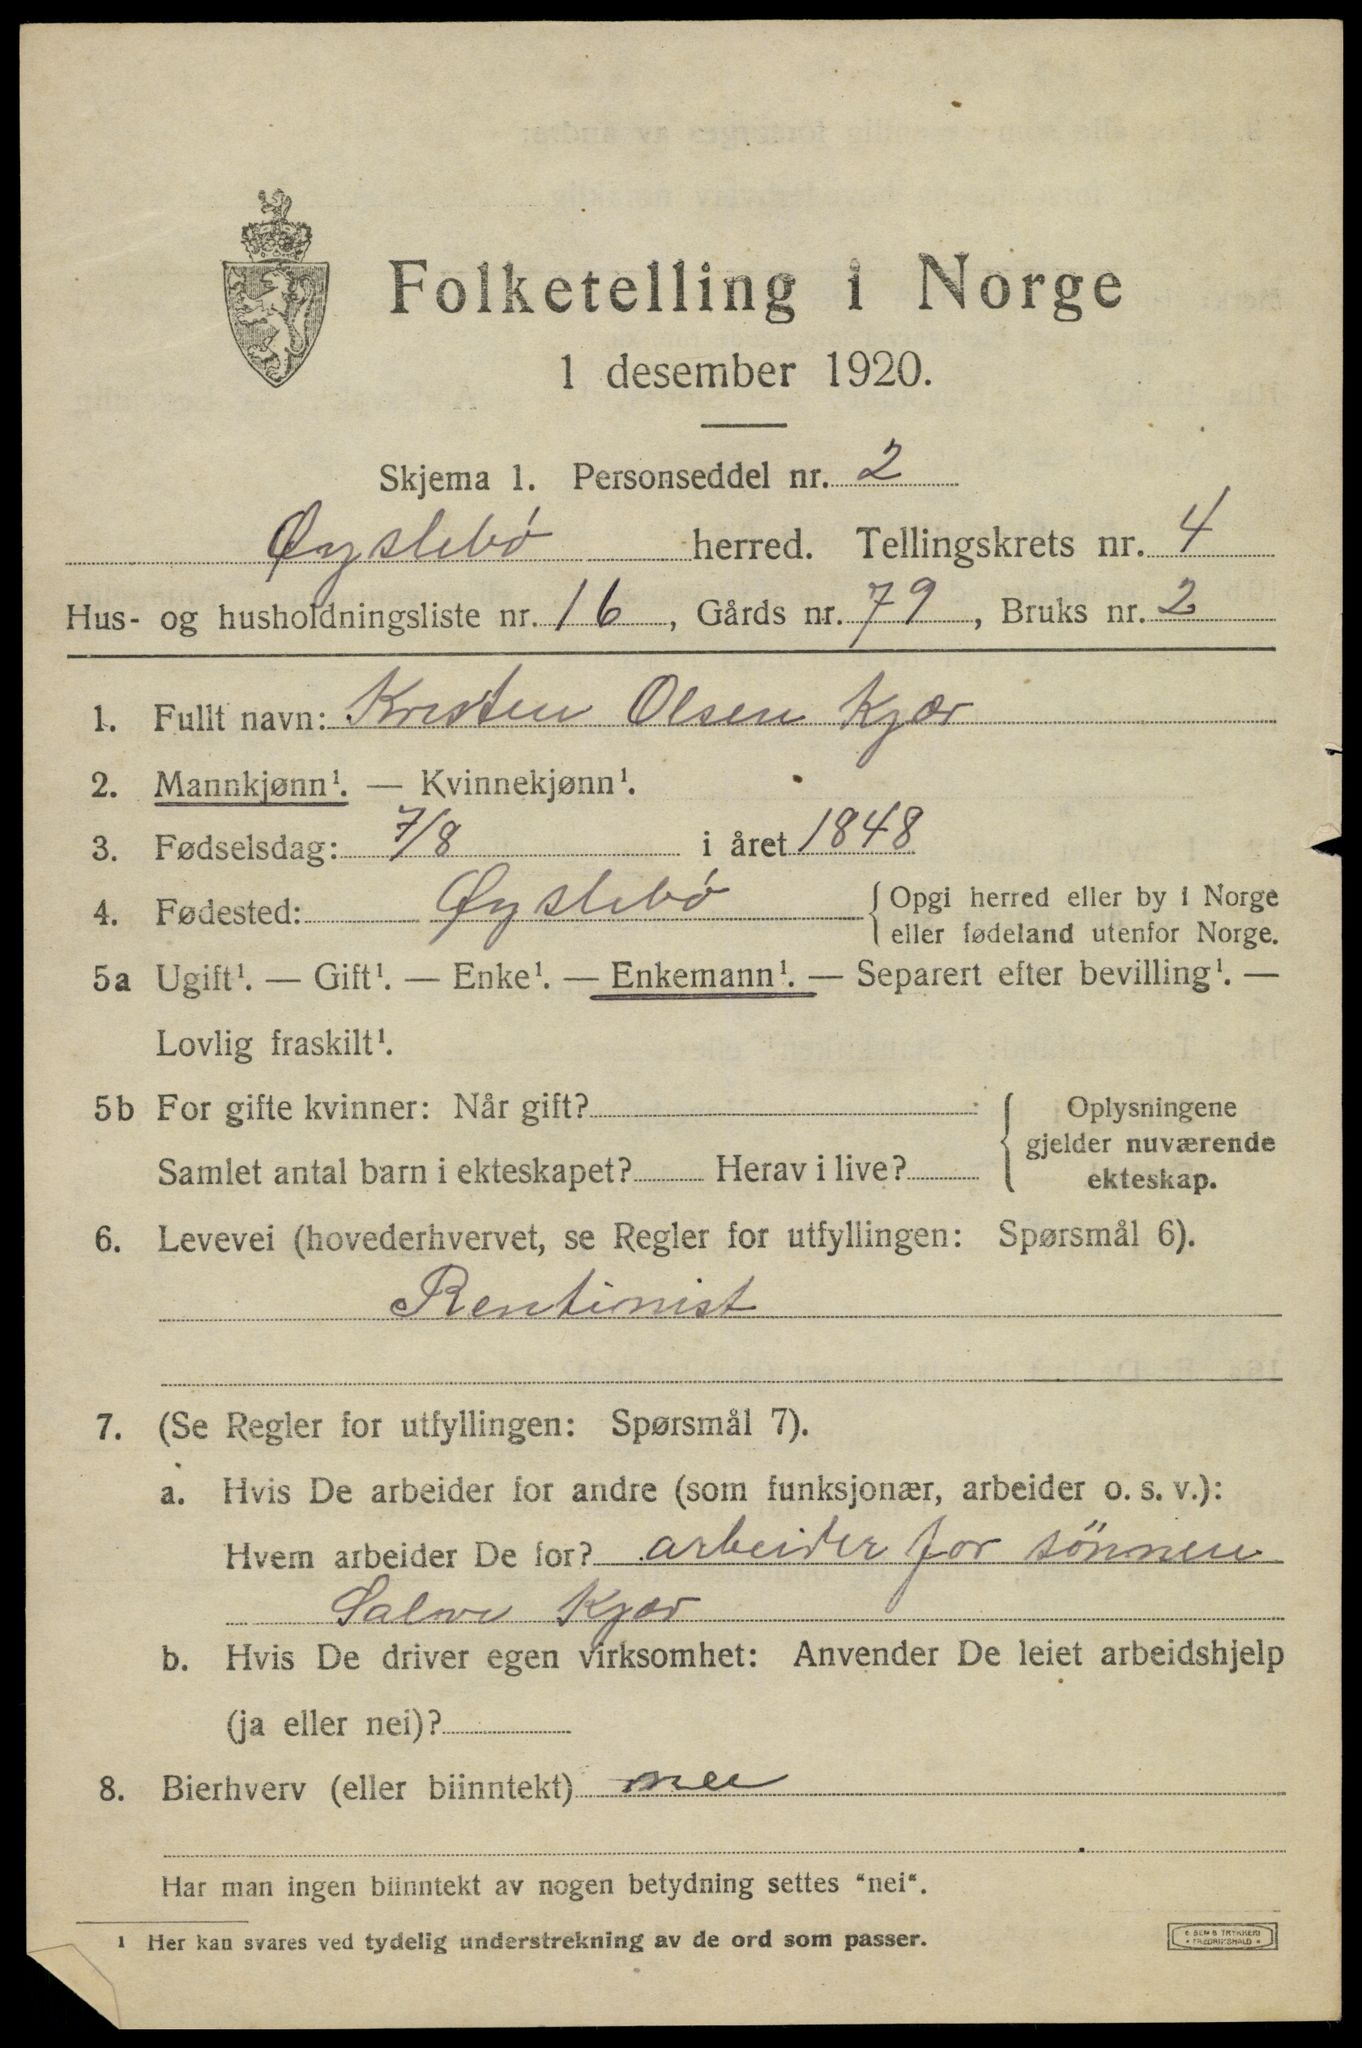 Folketelling i Norge
1 desember 1920.
Skjema 1. Personseddel nr. 2
Øyslebø herred. Tellingskrets nr. 4
Hus- og husholdningsliste nr. 16, Gårds nr. 79, Bruks nr. 2
1. Fullt navn: Kristen Olsen Kjær
2. Mannkjønn¹. — Kvinnekjønn¹.
3. Fødselsdag: 7/8 i året 1848
4. Fødested: Øyslebø { Opgi herred eller by i Norge
eller fødeland utenfor Norge.
5a Ugift¹. — Gift¹. — Enke¹. — Enkemann¹. — Separert efter bevilling¹. —
Lovlig fraskilt¹.
5b For gifte kvinner: Når gift?
Samlet antal barn i ekteskapet? Herav i live?
Oplysningene
gjelder nuværende
ekteskap.
6. Levevei (hovederhvervet, se Regler for utfyllingen: Spørsmål 6).
Rentinist
7. (Se Regler for utfyllingen: Spørsmål 7).
a. Hvis De arbeider for andre (som funksjonær, arbeider o. s. v.):
Hvem arbeider De for? arbeider for sönnen
Salve Kjær
b. Hvis De driver egen virksomhet: Anvender De leiet arbeidshjelp
(ja eller nei)?
8. Bierhverv (eller biinntekt) nei
Har man ingen biinntekt av nogen betydning settes "nei".
¹ Her kan svares ved tydelig understrekning av de ord som passer.